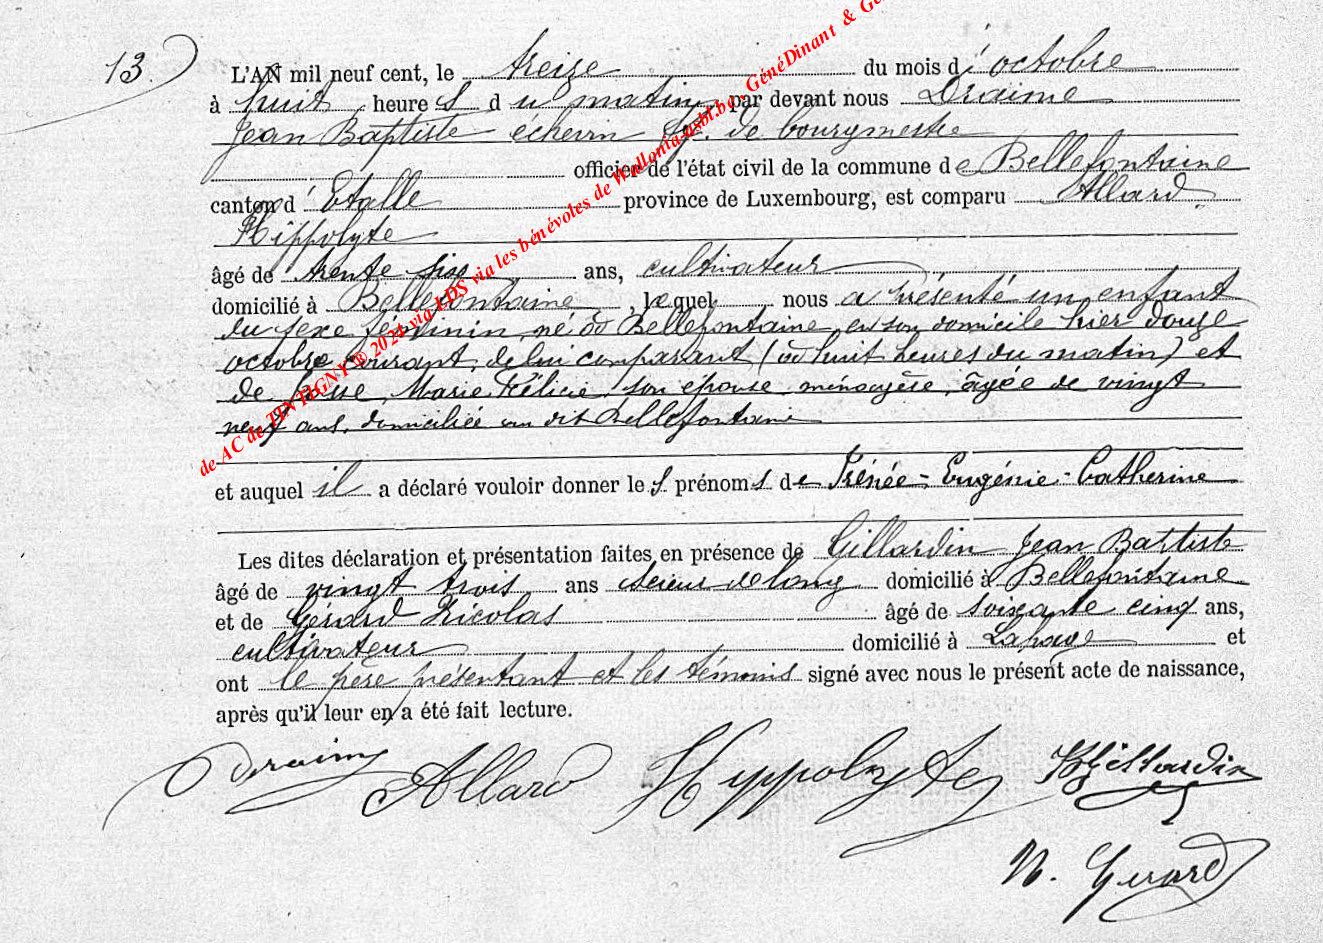 13.
L'AN mil neuf cent, le treize du mois d'octobre
à huit heures du matin, par devant nous Draime
Jean Baptiste échevin ff. de bourgmestre
officier de l'état civil de la commune de Bellefontaine
canton d'Etalle province de Luxembourg, est comparu Allard
Hippolyte
âgé de trente six ans, cultivateur
domicilié à Bellefontaine, lequel nous a présenté un enfant
du sexe féminin, né à Bellefontaine, en son domicile hier douze
octobre courant, de lui comparant (à huit heures du matin) et
de Marie Félicie, son épouse ménagère, âgée de vingt
neuf ans, domiciliée au dit Bellefontaine
et auquel il a déclaré vouloir donner les prénoms de Irénée-Eugénie-Catherine
Les dites déclaration et présentation faites en présence de Gillardin Jean Baptiste
âgé de vingt trois ans scieur de long domicilié à Bellefontaine
et de Gérard Nicolas âgé de soixante cinq ans,
cultivateur domicilié à Lahage et
ont le père présentant et les témoins signé avec nous le présent acte de naissance,
après qu'il leur en a été fait lecture.
Draime Allard Hyppolyte JBGillardin
N. Gerard
de AC de TINTIGNY ® 2024 via LDS via les bénévoles de Wallonia-asbl.be - GénéDinant & Gé